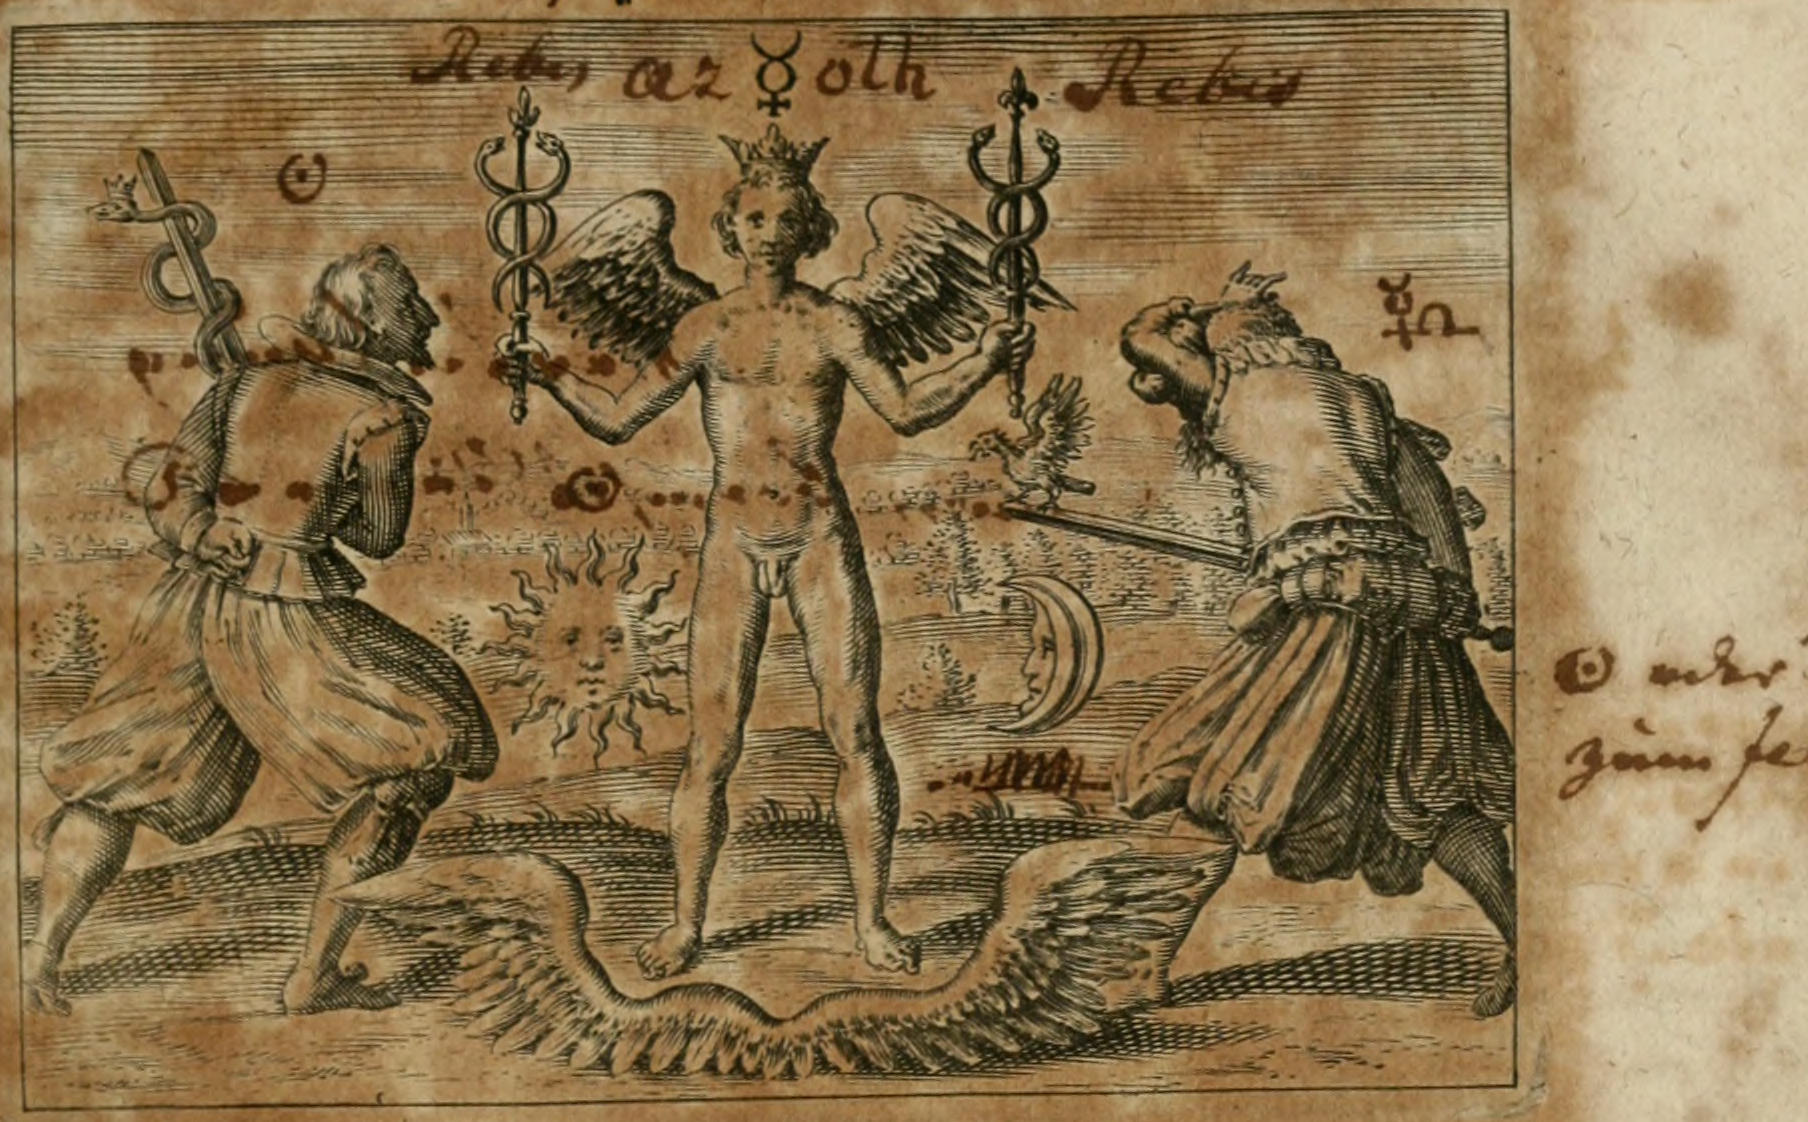 Rebis az ☿ oth Rebis
☉
☉
☉ oder
zum fe